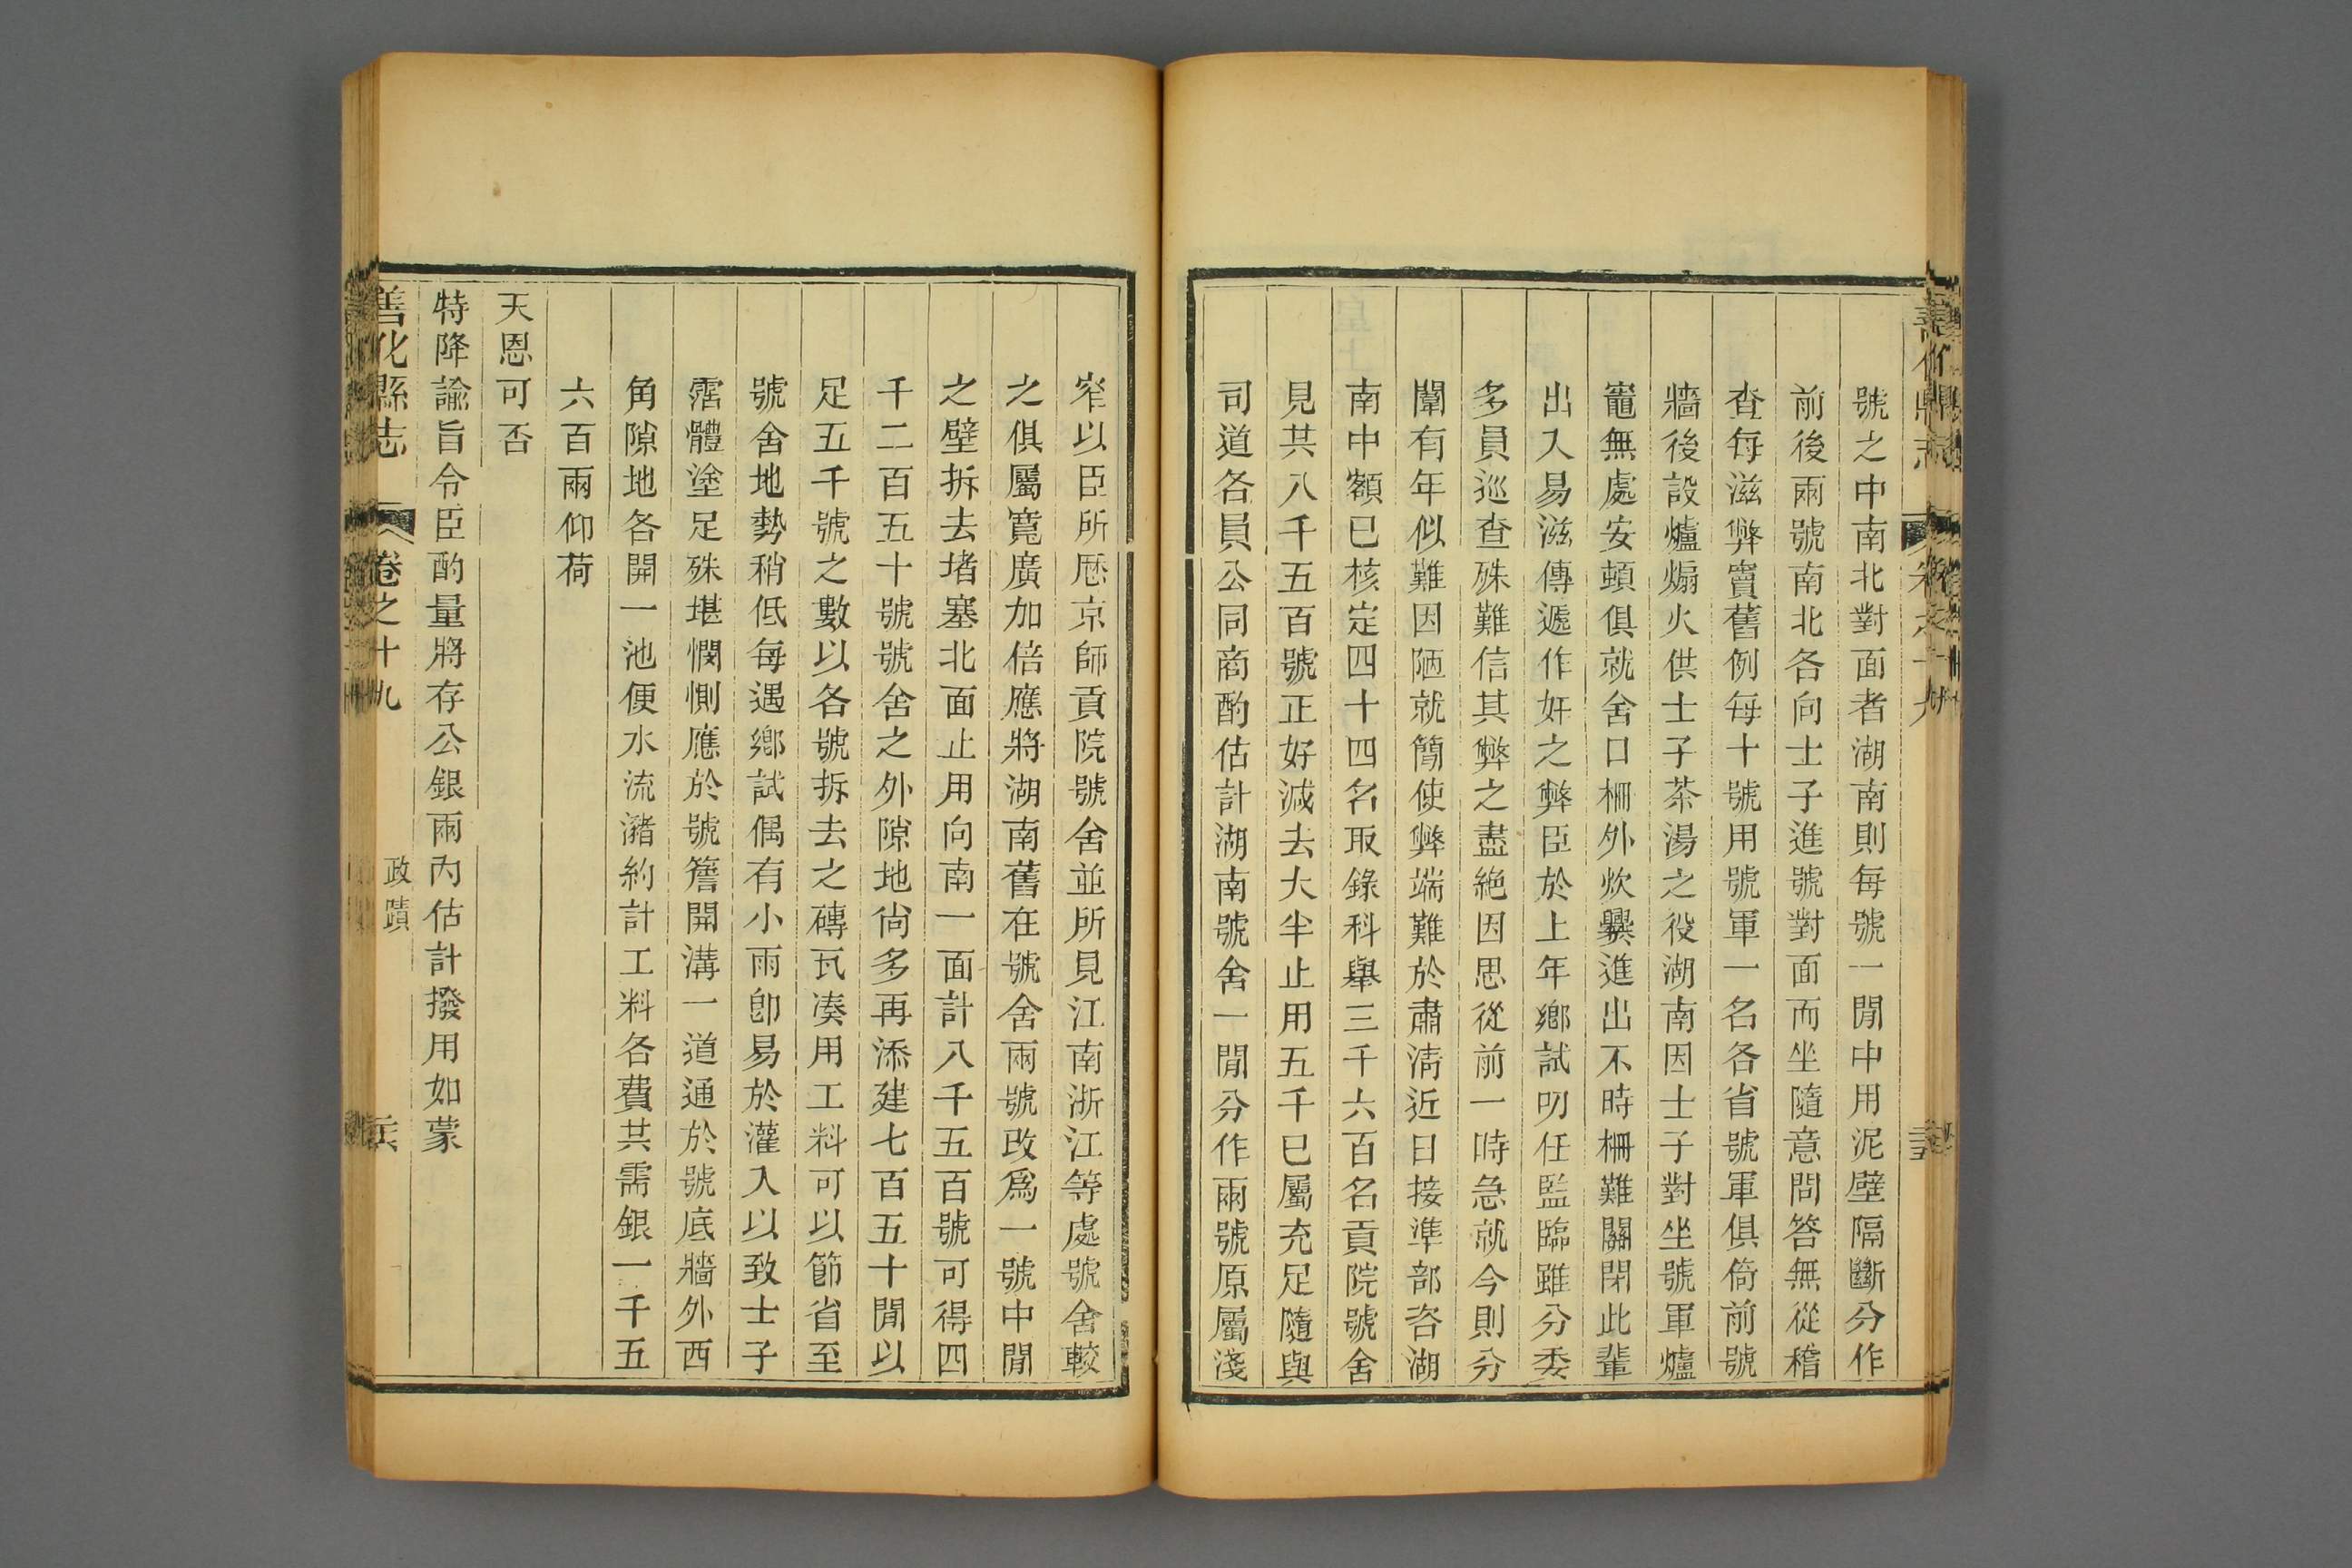 號之中南北對面者湖南則每號一間中用泥壁隔斷分作
前後兩號南北各向士子進號對面而坐隨意問答無從稽
查每滋弊竇舊例每十號用號軍一名各省號軍俱倚前號
牆後設爐煽火供士子茶湯之役湖南因士子對坐號軍爐
竈無處安頓俱就舍口柵外炊爨進出不時柵難關閉此輩
出入易滋傳遞作奸之弊臣於上年鄉試叨任監臨雖分委
多員巡查殊難信其弊之盡絕因思從前一時急就今則分
闈有年似難因陋就簡使弊端難於肅清近日接準部咨湖
南中額已核定四十四名取錄科舉三千六百名貢院號舍
見共八千五百號正好減去大半止用五千已屬充足隨與
司道各員公同商酌估計湖南號舍一間分作兩號原屬淺
窄以臣所歷京師貢院號舍並所見江南浙江等處號舍較
之俱屬寬廣加倍應將湖南舊在號舍兩號改爲一號中間
之壁拆去堵塞北面止用向南一面計八千五百號可得四
千二百五十號號舍之外隙地尙多再添建七百五十間以
足五千號之數以各號拆去之磚瓦湊用工料可以節省至
號舍地勢稍低每遇鄉試偶有小雨卽易於灌入以致士子
霑體塗足殊堪憫惻應於號簷開溝一道通於號底牆外西
角隙地各開一池便水流瀦約計工料各費共需銀一千五
六百兩仰荷
天恩可否
特降諭旨令臣酌量將存公銀兩內估計撥用如蒙
善化縣志 卷之十九 政蹟